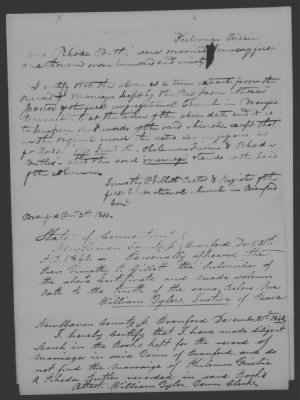 Philemon Frisbie
and Rhoda Butler were married January first
one thousand seven hundred and ninety
I certify that the above is a true extract from the
record of Marriages kept by the Rev Jason Atwater
Pastor of the first congregational Church in Branford
Connecticut at the time of the above date and it is
in the words of the said except that
in the original record the dates and are
as follows
Butler that the word married stands at the head
of the column
Timothy P. Gillett Pastor & Register of the
first Ecclesiastical Church in Branford
Conn
Branford Decr 31st 1840.
State of Connecticut
New Haven County ss Branford Dec 31st
A.D. 1840. Personally appeared the
Revd Timothy P. Gillett the Subscriber of
the above Certificate and made solemn
Oath to the truth of the same, Before me
William Tyler Justice of Peace
New Haven County ss Branford December 31st 1840
I hereby Certify that I have made diligent
Search in the Books kept for the record of
Marriages in said Town of Branford and do
not find the Marriage of Philemon Frisbie
& Rhoda Butler recorded in said Books
Attest William Tyler Town Clerk